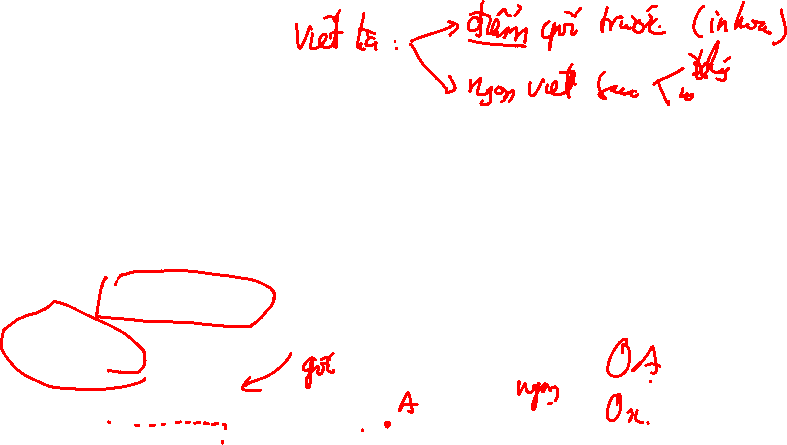 Viết tia : điểm gốc trước (in hoa)
ngọn viết sau
gốc
A
ngọn
OA
Ox.